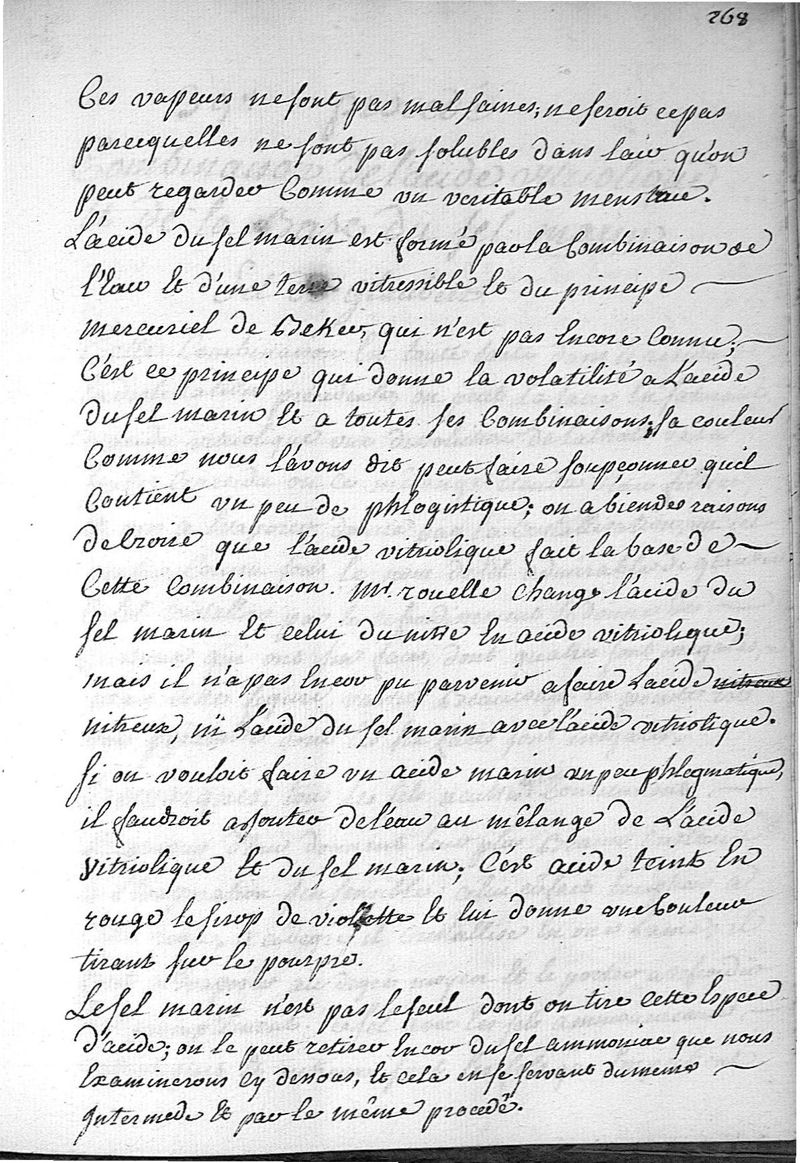 268
Ces vapeurs ne sont pas mal saines; ne seroit ce pas
parcequelles ne sont pas solubles dans l'air qu'on
peut regarder Comme un veritable menstrue.
L'acide du sel marin est formé par la Combinaison de
l'Eau Et d'une terre vitressible Et du principe
mercuriel de Beker, qui n'est pas Encore Connu;
C'est ce principe qui donne la volatilité a L'acide
du sel marin Et a toutes ses Combinaisons; sa couleur
Comme nous l'avons dit peut faire soupçonner qu'il
Contient un peu de phlogistique; on a bien des raisons
de Croire que l'acide vitriolique fait la base de
Cette Combinaison. Mr. rouelle change l'acide du
sel marin Et celui du nitre En acide vitriolique;
mais il n'a pas Encor pu parvenir a faire L'acide nitreux
nitreux, ni L'acide du sel marin avec l'acide vitriolique.
Si on vouloit faire un acide marin un peu phlegmatique,
il faudroit ajouter de l'eau au mêlange de L'acide
vitriolique Et du sel marin; C'est acide teint En
rouge le sirop de violette Et lui donne une Couleur
tirant sur le pourpre.
Le sel marin n'est pas le seul dont on tire Cette Espece
d'acide; on le peut retirer Encor du sel ammoniac que nous
Examinerons Cy dessous, Et cela en se servant du meme
Intermede Et par le même procedé.